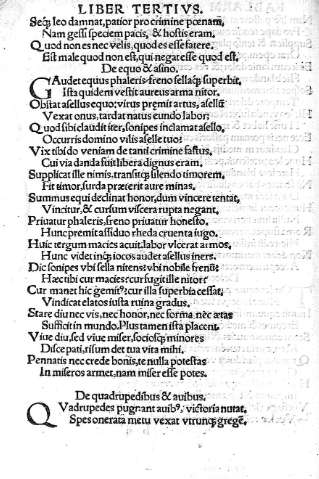 LIBER TERTIVS.
Seq; leo damnat, patior pro crimine pœnam,
Nam gessi speciem pacis, & hostis eram.
Quod non es nec velis, quod es esse fatere.
Est male quod non est, qui negat esse quod est.
De equo & asino.
GAudet equus phaleris freno sellaq; superbit,
Ista quidem vestit aureus arma nitor.
Obstat asellus equo: virus premit artus, asellũ
Vexat onus, tardat natus eundo labor:
Quod sibi claudit iter, sonipes inclamat asello,
Occurris domino vilis aselle tuo?
Vix tibi do veniam de tanti crimine fastus,
Cui via danda fuit libera dignus eram.
Supplicat ille nimis, transitq; silendo timorem,
Fit timor, surda præterit aure minas,
Summus equi declinat honor, dum vincere tentat,
Vincitur, & cursum viscera rupta negant,
Priuatur phaleris, freno priuatur honesto.
Hunc premit assiduo rheda cruenta iugo.
Huic tergum macies acuit, labor vlcerat armos,
Hunc videt inq; iocos audet asellus iners.
Dic sonipes vbi sella nitens? vbi nobile frenũ?
Hæc tibi cur macies? cur fugit ille nitor?
Cur manet hic gemitꝰ? cur illa superbia cessat,
Vindicat elatos iusta ruina gradus.
Stare diu nec vis, nec honor, nec forma nec ætas
Sufficit in mundo. Plus tamen ista placent.
Viue diu, sed viue miser, sociosq; minores
Disce pati, risum det tua vita mihi.
Pennatis nec crede bonis, te nulla potestas
In miseros armet, nam miser esse potes.
De quadrupedibus & auibus.
QVadrupedes pugnant auibꝰ, victoria nutat,
Spes onerata metu vexat vtrunq; gregẽ.